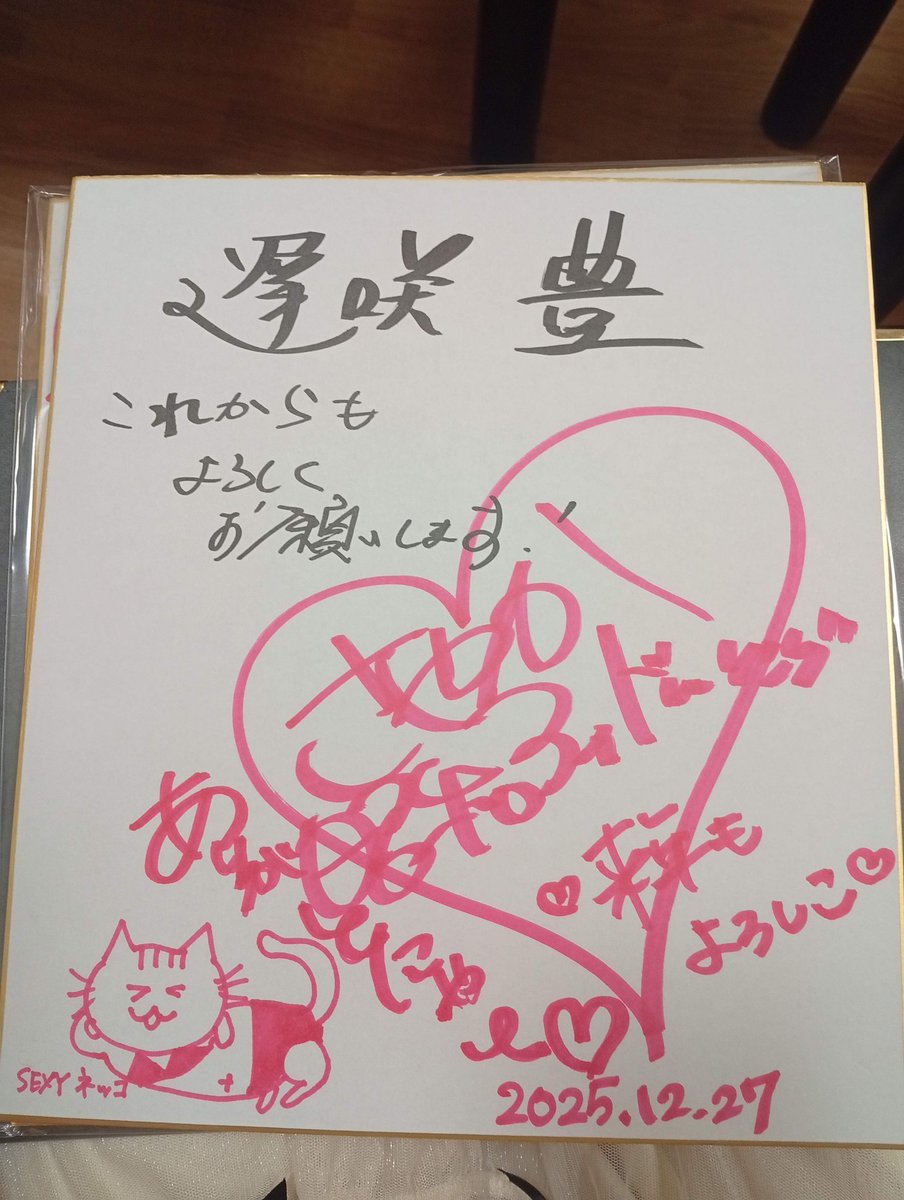 遅咲 豊
これからも
よろしく
お願いします!
ありがとにゃ
来年も
よろしこ
SEXY ネッコ
2025.12.27